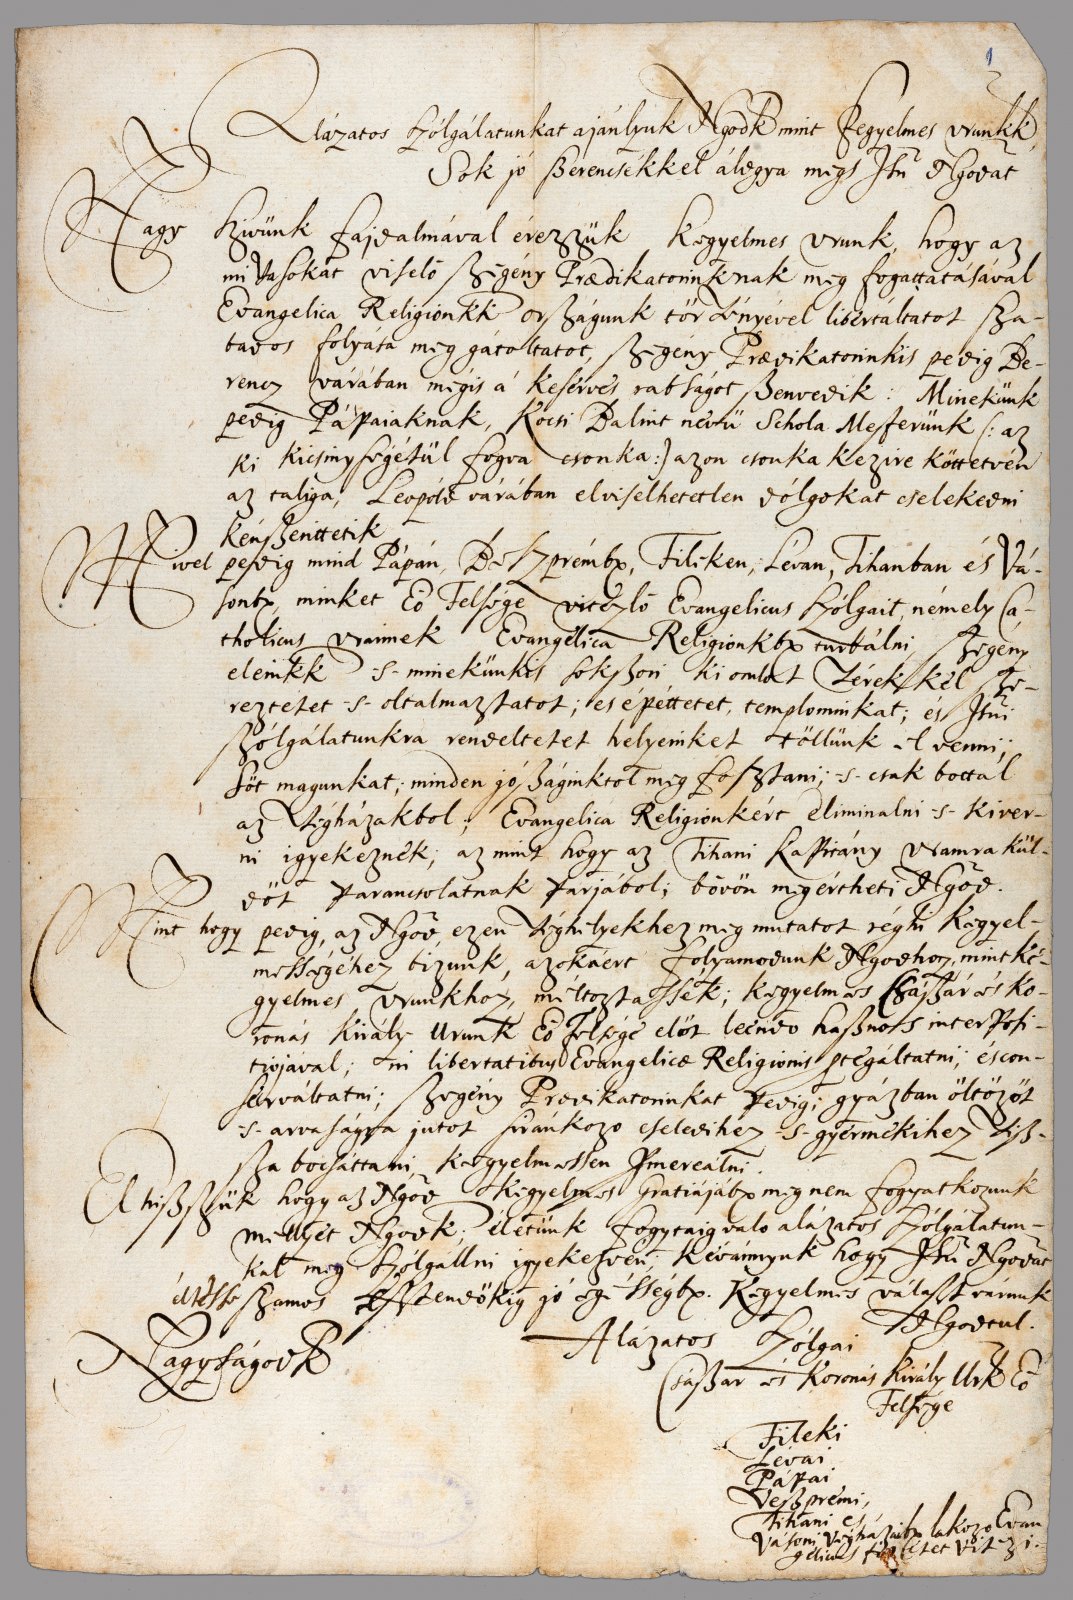 1
Alázatos szólgálatunkat ajánlyuk Ngodk mint kegyelmes vrunkk,
Sok jó szerencsékkel áldgya megh Istn Ngodat
Nagy szivünk fajdalmával érezzük kegyelmes vrunk, hogy az
mi Vasokat viselö szegény Prædikatorinknak meg fogattatásával
Evangelica Religionkk országunk tör vényével libertáltatot sza-
bados folyása meg gátoltatot, szegény Prædikatorinkis pedig Be-
rencz várában mégis á keserves rabságot szenvedik. Minekünk
pedig Pápaiaknak, Kocsi Balint nevü Schola Mesterünk /: az
ki kicsinységétül fogva csonka :/ azon csonka kezire köttetvén
az taliga, Leopóld várában elviselhetetlen dólgokat cselekedni
kénszerittetik
Mivel pedig mind Pápán, Veszprémbn, Fileken, Léván, Tihanban és Vá-
sonbn, minket Eö Felsége vitézlö Evangelicus szólgait, némely Ca-
tholicus vraimek Evangelica Religionkbn turbálni, szegény
eleinkk -s- minekünkis sokszori ki omlot vérekkel sze-
reztetet -s- oltalmaztatot; es épéttetet, templominkat; és Istni
szólgálatunkra rendeltetet helyeinket töllünk el venni;
söt magunkat; minden jószáginktol meg fosztani; -s- csak bottal
az végházakbol; Evangelica Religionkért eliminalni -s- kiver-
ni igyekeznék; az mint hogy az Tihani kapitány vramra kül-
döt parancsolatnak parjábol; bövön megértheti Ngod.
Mint hogy pedig, az Ngod ezen véghelyekhez meg mutatot réghi kegyel-
mességéhez bizunk, azokáért folyamodunk Ngodhoz, mint ke-
gyelmes vrunkhoz, méltoztassék; kegyelmes Császár és ko-
ronás király Urunk Eö Felsége elöt leendö hasznoss interposi-
tiojával; in libertatibus Evangelicæ Religionis ... és con-
serváltatni; szegény Prædikatorinkat pedig; gyázban öltözöt
-s- arvaságra jutot siránkozo cselédihez -s- gyermekihez visz-
sza bocsáttani kegyelmessen Impetrálni.
El hiszszük hogy az Ngod kegyelmes Gratiájábn meg nem fogyatkozunk
mellyet Ngodk; életünk fogytaig valo alázatos szólgálatun-
kal meg szólgállni igyekezvén, kévánnyuk hogy Istn Ngodat
éltesse szamos esztendökig jó egésségbn. Kegyelmes választ várunk
Ngodtul.
Nagyságodk
Alázatos szólgai
Császár és koronás király Urk Eö
Felsége
Fileki
Lévai
Pápai
Veszprémi,
Tihani és
Vásoni végházaibn lakozo Evan
gelicus ... vitézi.